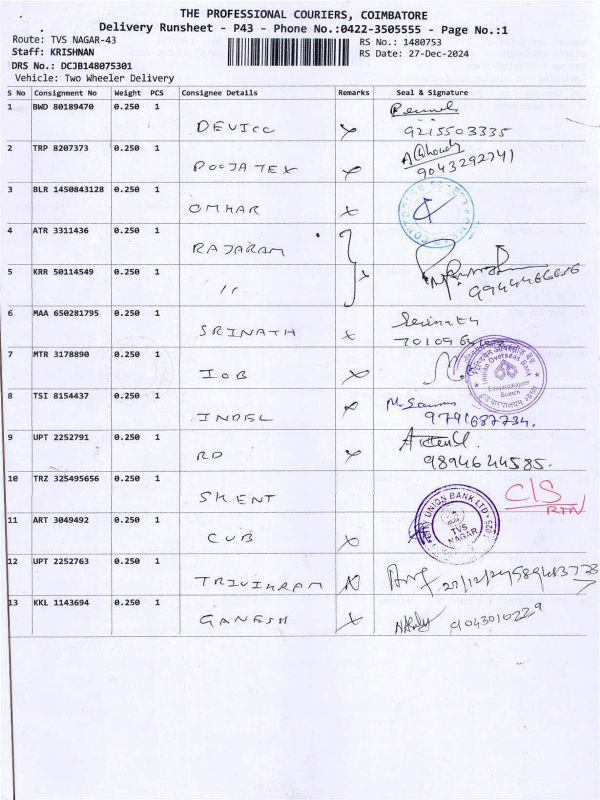 THE PROFESSIONAL COURIERS, COIMBATORE
Delivery Runsheet - P43 - Phone No.:0422-3505555 - Page No.:1
Route: TVS NAGAR-43
Staff: KRISHNAN
DRS No.: DCJB148075301
Vehicle: Two Wheeler Delivery
RS No.: 1480753
RS Date: 27-Dec-2024
S No Consignment No Weight PCS Consignee Details Remarks Seal & Signature
1 BWD 80189470 0.250 1
DEVICC 9215503335
2 TRP 8207373 0.250 1
POOJA TEX 9043292741
3 BLR 1450843128 0.250 1
OMKAR
4 ATR 3311436 0.250 1
RAJARAM
5 KRR 50114549 0.250 1
〃 9944466656
6 MAA 650281795 0.250 1
SRINATH Srinath
7 MTR 3178890 0.250 1
IOB
Indian Overseas Bank
Branch
8 TSI 8154437 0.250 1
INDEL 9791637734.
9 UPT 2252791 0.250 1
RD 9894624585.
10 TRZ 325495656 0.250 1
SKENT C/S
RTN
11 ART 3049492 0.250 1
CUB
CITY UNION BANK LTD
TVS
NAGAR
12 UPT 2252763 0.250 1
TRIVIKRAM 27/12/24
13 KKL 1143694 0.250 1
GANESH 9043010229